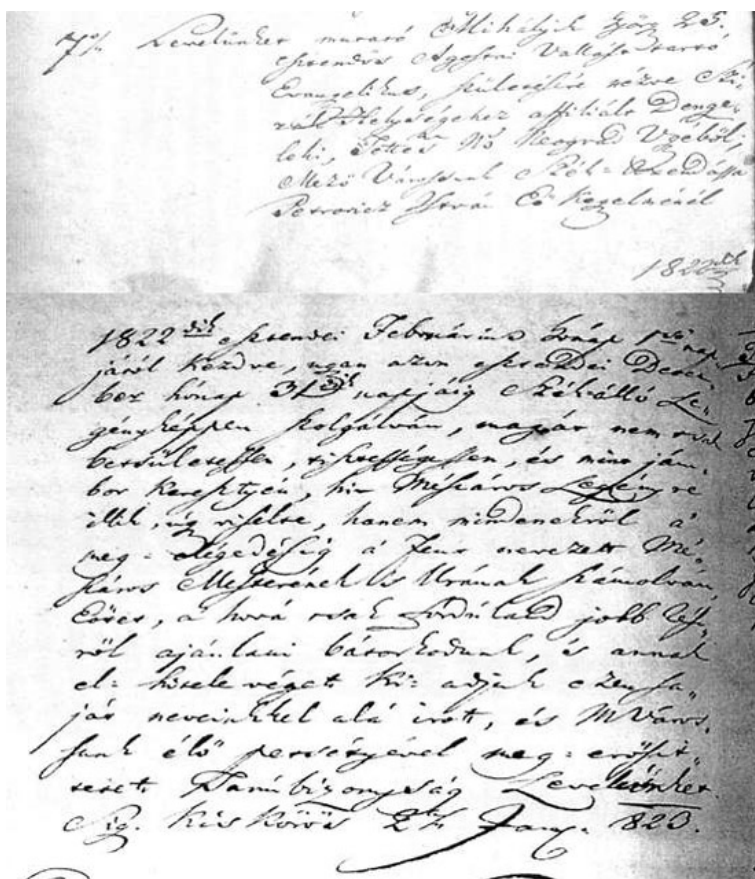 7. Levelünket mutató Mihályik György 25.
esztendős Ágostai Vallás tartó
Evangelikus, születésére nézve Szi-
rák Helységéhez affiliált Denge-
leki, Tettes Nó Neográd Vgyéből,
Mező Városunk Szék-Árendássa
Petrovicz Istvân Eő Kegelménél
1822dik
1822dik esztendei Februárius hónap 1ső nap
járól kezdve, ugyan azon esztendei Decem,,
ber hónap 31dik napjáig Székálló Le,,
gényképpen szolgálván, magát nem csak
betsületessen, tisztességessen, és mint jám,,
bor keresztyén, hiv Mészáros Legényre
illik, úgy viselte, hanem mindenekről a'
meg-elégedésig a' fenn nevezett Mé,,
száros Mesterének és Urának számolván,
Eőtet, a' hová csak fordúland jobb rész,,
ről ajánlani bátorkodunk, és annak
el-hitele végett ki-adjuk ezen sa,,
ját neveinkkel alá irott, és MVáros,,
sunk élő petsétyével meg-erőssit,,
tetett Tanúbizonyság Levelünket.
Sig. Kis Kőrös 2dik Jany. 823.